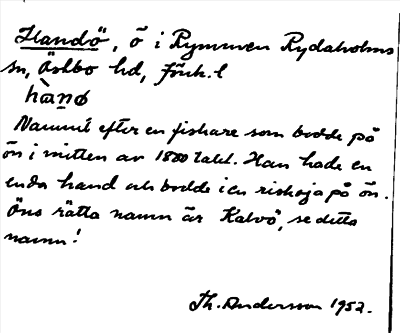 Handö, ö i Rymmen Rydaholms
sn, Östbo hd, Jönk. l
hànø
Namnet efter en fiskare som bodde på
ön i mitten av 1800 talet. Han hade en
enda hand och bodde i en riskoja på ön.
Öns rätta namn är Kalvö, se detta
namn!
Th. Andersson 1952.